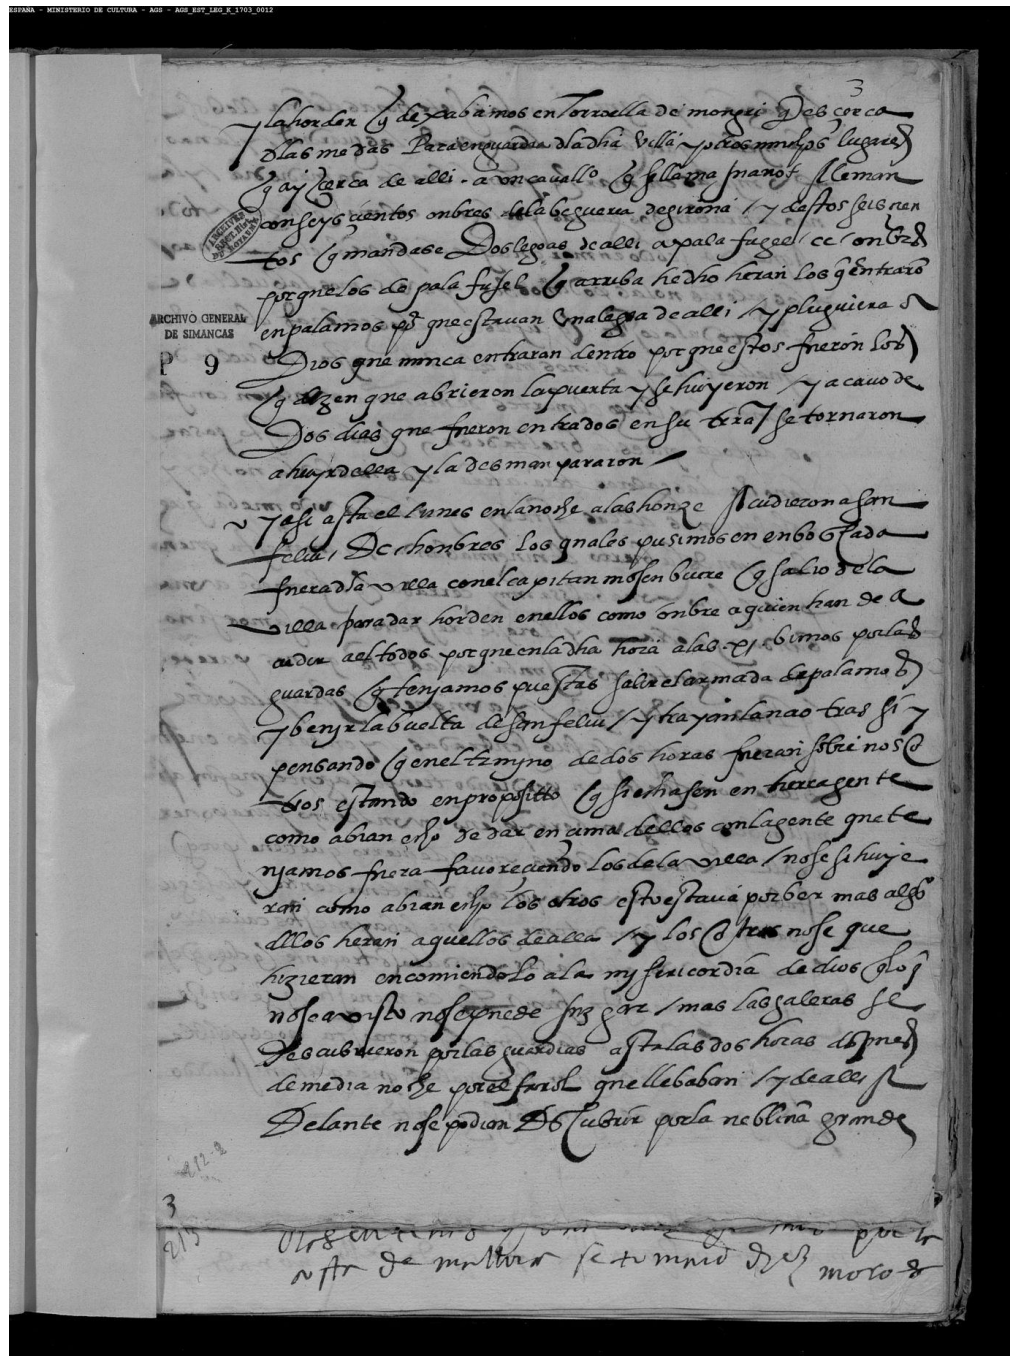 ESPAÑA - MINISTERIO DE CULTURA - AGS - AGS_EST_LEG_K_1703_0012
3
y la horden q dexabamos en Torroella de mongri q es cerca
dlas medas Para en guarda dla dha villa y otros muchos lugares
q ay cerca de alli . a un cavallo q se llama Juanot Aleman
con seys cientos onbres de la begueria de girona / y destos seiscien
tos q mandase Dos leguas de alli a pala fugel / cc / onbres
porque los de pala fujel q arriba he dho heran los q entraro
en palamos por que estavan una legua de alli / y pluguiera a
Dios que nunca entraran dentro porque estos fueron los
q dizen que abrieron la puerta y se huyeron / y a cavo de
Dos dias que fueron entrados en su trra se tornaron
a huyr della y la desmanpararon /
ARCHIVO GENERAL
DE SIMANCAS
P 9
~ y asi asta el lunes en la noche a las honze Acudieron a san
feliu / Dc / honbres los quales pusimos en enboscada
fuera dla villa con el capitan mosen bucre q salio de la
villa para dar horden en ellos como onbre a quien han de a
cudir a el todos porque en la dha hora a las .xi. bimos por las
guardas q teniamos puestas salir el armada de palamos
y benyr la buelta de san feliu / y trayan la nao tras si y
pensando q en el termyno de dos horas fueran sobre noso
tros estando en proposito q si echasen en tierra gente
como abian echo de dar en cima dellos con la gente que te
niamos fuera favoreciendo los de la villa / no se si huye
ran como abian echo los otros esto estava por ber mas algo
dllos heran aquellos de alla / y los otros no se que
hizieran encomiendolo a la mysericordia de dios q lo q
no se a visto no se puede juzgar / mas las galeras se
descubrieron por las guardias asta las dos horas despues
de media noche por el farol que llebaban / y de alli A
Delante no se podian Descubrir por la neblina grande
212-2
3
213
de se tomaro diez moros